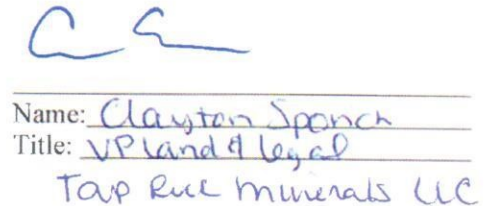 Name: Clayton Sponch
Title: VP Land & Legal
Tap Rock Minerals LLC